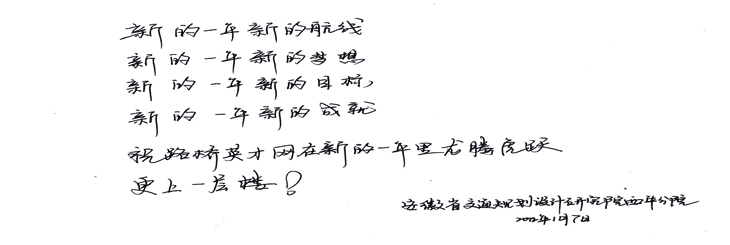 新的一年新的航线
新的一年新的梦想
新的一年新的目标，
新的一年新的成就
祝路桥英才网在新的一年里龙腾虎跃
更上一层楼！
安徽省交通规划设计研究院西华分院
1月7日